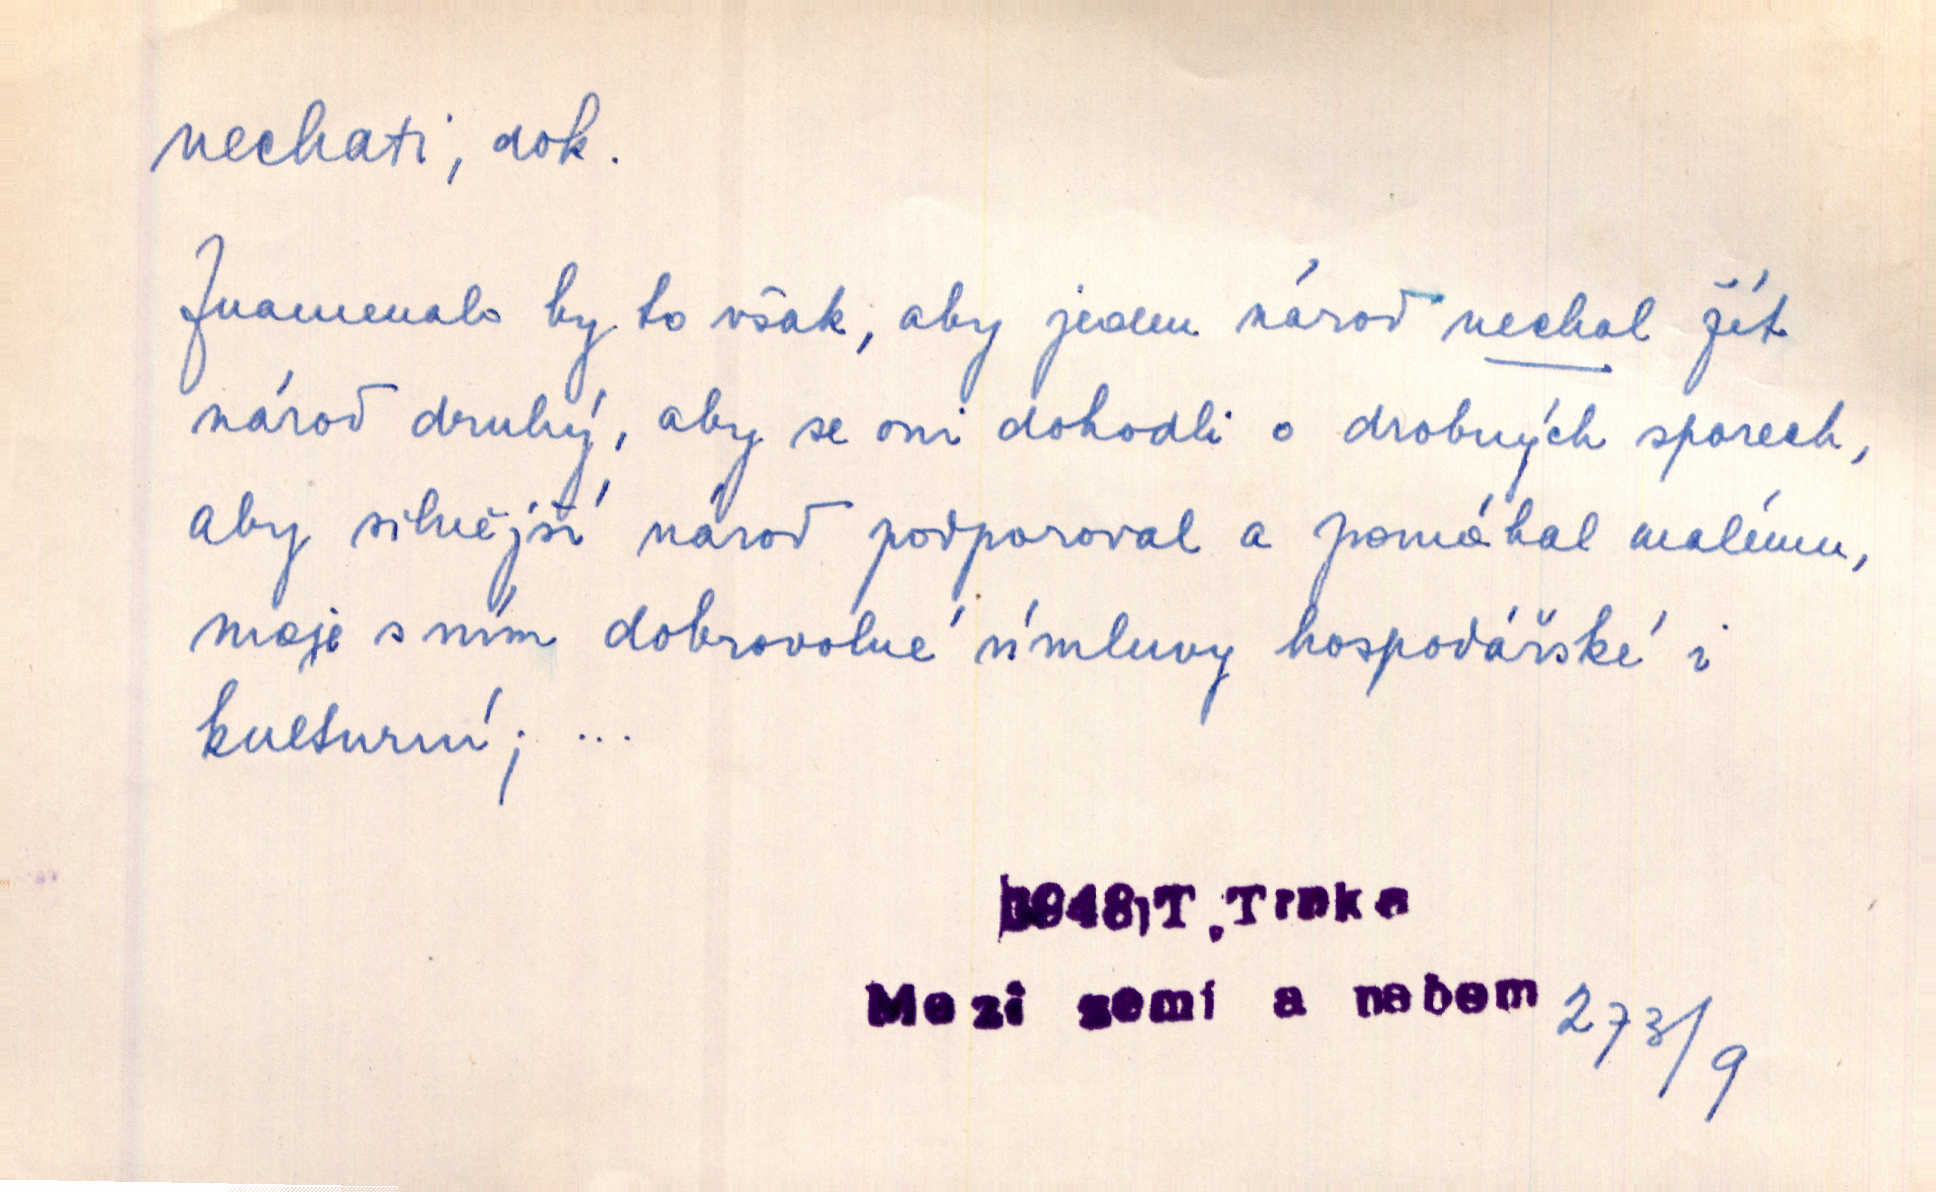 nechati, dok.
Znamenalo by to však, aby jeden národ nechal žít
národ druhý, aby se oni dohodli o drobných sporech,
aby silnější národ podporoval a pomáhal malému,
maje s ním dobrovolné úmluvy hospodářské i
kulturní; ...
1948, T. Trnka
Mezi zemí a nebem 273/9